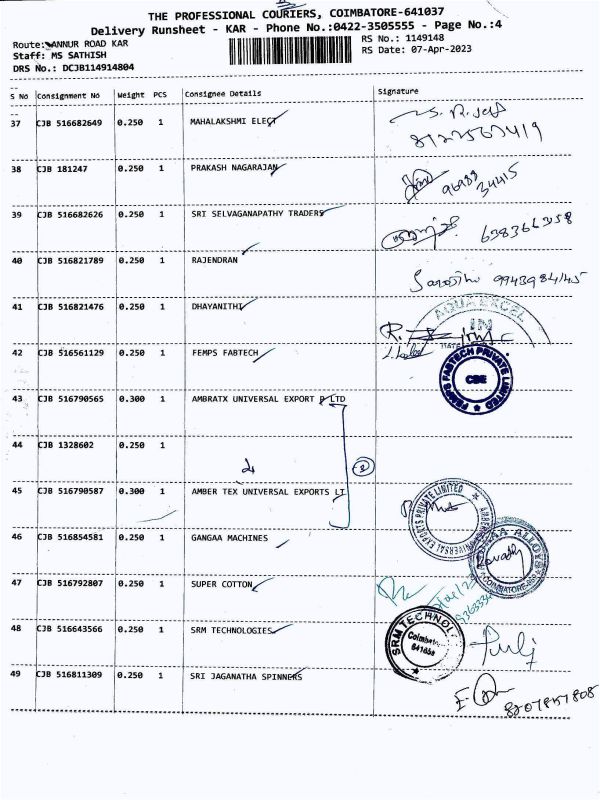 THE PROFESSIONAL COURIERS, COIMBATORE-641037
Delivery Runsheet - KAR - Phone No.:0422-3505555 - Page No.:4
Route: ANNUR ROAD KAR
RS No.: 1149148
Staff: MS SATHISH
RS Date: 07-Apr-2023
DRS No.: DCJB114914804
S No Consignment No Weight PCS Consignee Details Signature
37 CJB 516682649 0.250 1 MAHALAKSHMI ELECT
38 CJB 181247 0.250 1 PRAKASH NAGARAJAN
39 CJB 516682626 0.250 1 SRI SELVAGANAPATHY TRADERS
40 CJB 516821789 0.250 1 RAJENDRAN
41 CJB 516821476 0.250 1 DHAYANITHI
AQUA EXCEL
42 CJB 516561129 0.250 1 FEMPS FABTECH
FEMPS FABTECH PRIVATE LIMITED
CBE
43 CJB 516790565 0.300 1 AMBRATX UNIVERSAL EXPORT P LTD
44 CJB 1328602 0.250 1
45 CJB 516790587 0.300 1 AMBER TEX UNIVERSAL EXPORTS LT
46 CJB 516854581 0.250 1 GANGAA MACHINES
47 CJB 516792807 0.250 1 SUPER COTTON
48 CJB 516643566 0.250 1 SRM TECHNOLOGIES
SRM TECHNOL
49 CJB 516811309 0.250 1 SRI JAGANATHA SPINNERS